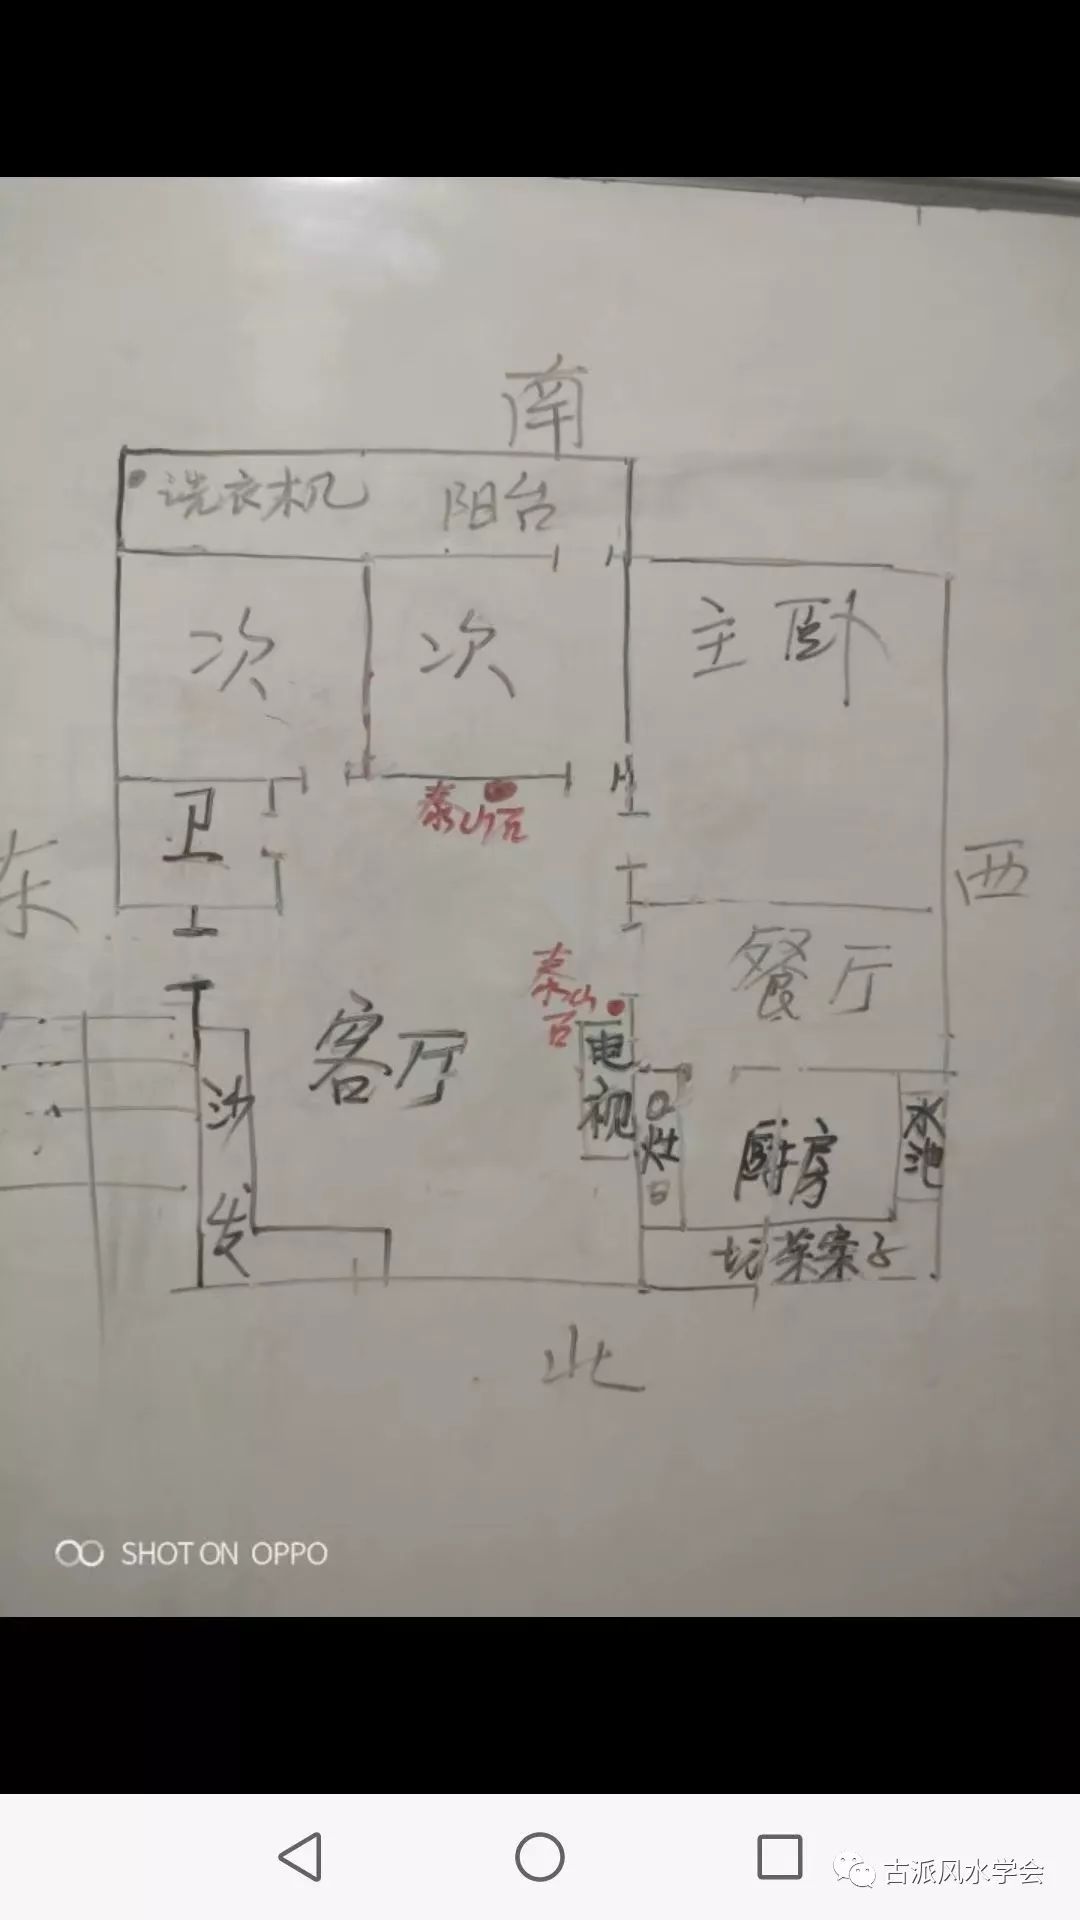 南
洗衣机 阳台
次 次 主卧
卫
泰山石
东
西
餐厅
泰山
石
电
视
客厅
沙
发
灶
台
厨房
水
池
切菜案子
北
SHOT ON OPPO
古派风水学会